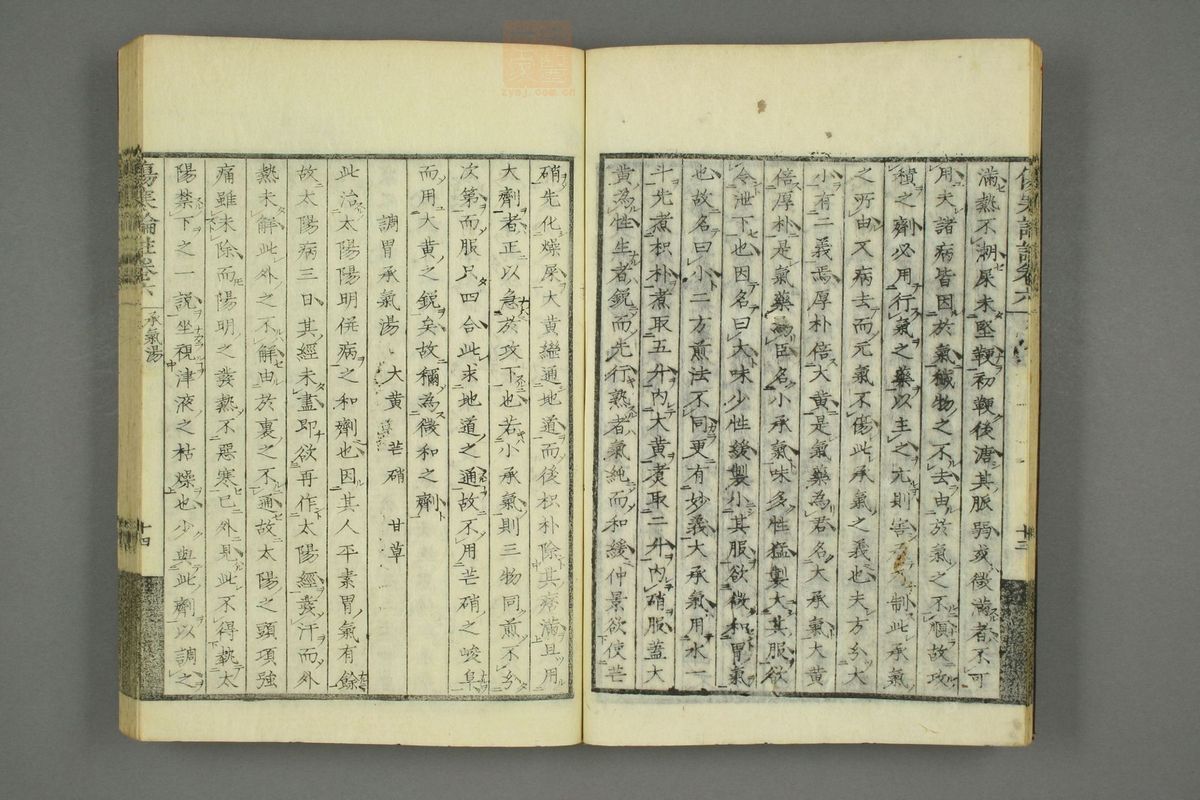 滿熱不潮尿未堅鞕初鞕後溏其脈弱或微滿者不可
用夫諸病皆因於氣穢物之不去由於氣之不順故攻
積之劑必用行氣之藥以主之亢則害 制此承氣
之所由又病去而元氣不傷此承氣之義也夫方分大
小有二義焉厚朴倍大黃是氣藥為君名大承氣大黃
倍厚朴是氣藥為臣名小承氣味多性猛製大其服欲
令泄下也因名曰大味少性緩製小其服欲微和胃氣
也故名曰小二方煎法不同更有妙義大承氣用水一
斗先煮枳朴煮取五升內大黃煮取二升內硝服蓋大
黃為性生者銳而先行熟者氣純而和緩仲景欲使芒
傷寒論註卷六
十三
硝先化燥屎大黃繼通地道而後枳朴除其痞滿且用
大劑者正以急於攻下也若小承氣則三物同煎不分
次第而服只四合此求地道之通故不用芒硝之峻且
而用大黃之銳矣故稱為微和之劑
調胃承氣湯 大黃 芒硝 甘草
此治太陽陽明併病之和劑也因其人平素胃氣有餘
故太陽病三日其經未盡即欲再作太陽經發汗而外
熱未解此外之不解由於裏之不通故太陽之頭項強
痛雖未除而陽明之發熱不惡寒已外見此不得執太
陽禁下之一說坐視津液之枯燥也少與此劑以調之
傷寒論註卷六
承氣湯
十四
zysj.com.cn